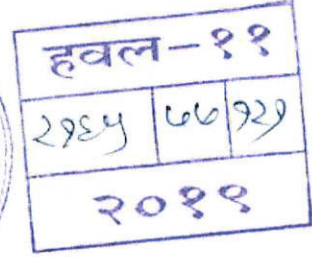 हवल-११
२१६५ ७७ १२१
२०१९